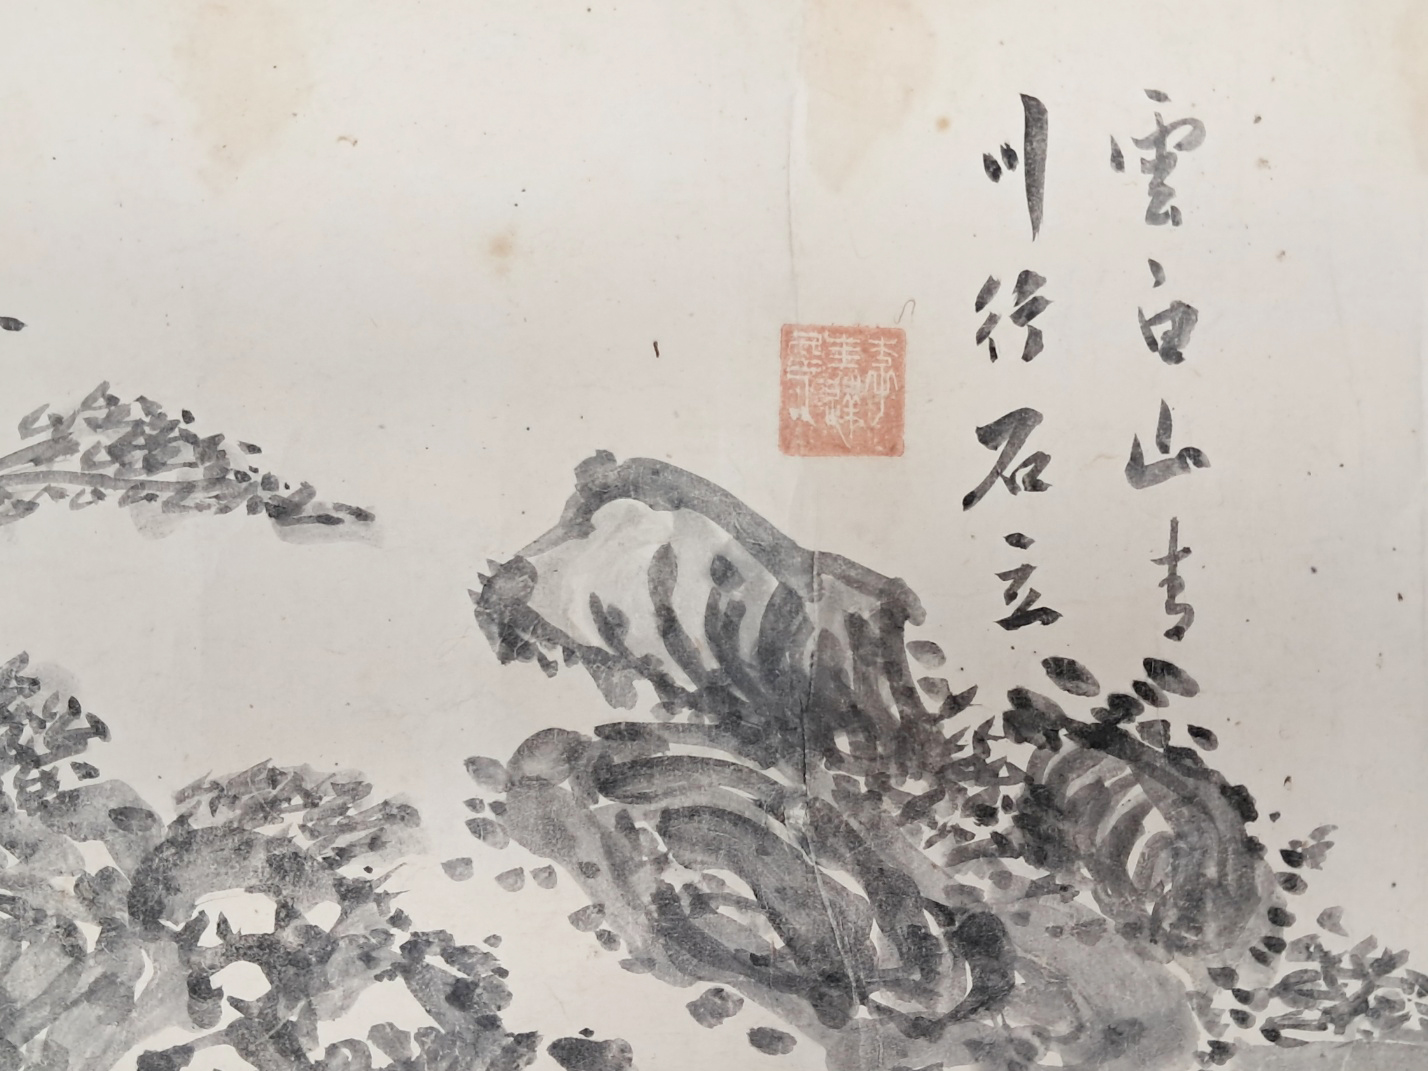 雲白山青
川行石立